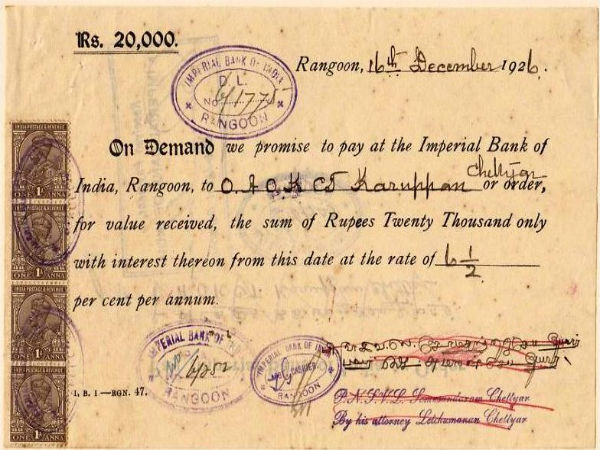 Rs. 20,000.
IMPERIAL BANK OF INDIA
D. L.
No.
RANGOON
Rangoon, 16th December 1926.
On Demand we promise to pay at the Imperial Bank of
Chettyar
India, Rangoon, to O. A. O. K. CT Karuppan or order,
for value received, the sum of Rupees Twenty Thousand only
with interest thereon from this date at the rate of 6 1/2
per cent per annum.
INDIA POSTAGE & REVENUE
1A
ONE ANNA
INDIA POSTAGE & REVENUE
1A
ONE ANNA
INDIA POSTAGE & REVENUE
1A
ONE ANNA
INDIA POSTAGE & REVENUE
1A
ONE ANNA
IMPERIAL BANK OF
RANGOON
IMPERIAL BANK OF INDIA
CASHIER
RANGOON
I. B. I—RGN. 47.
Chettyar
By his attorney Letchumanan Chettyar